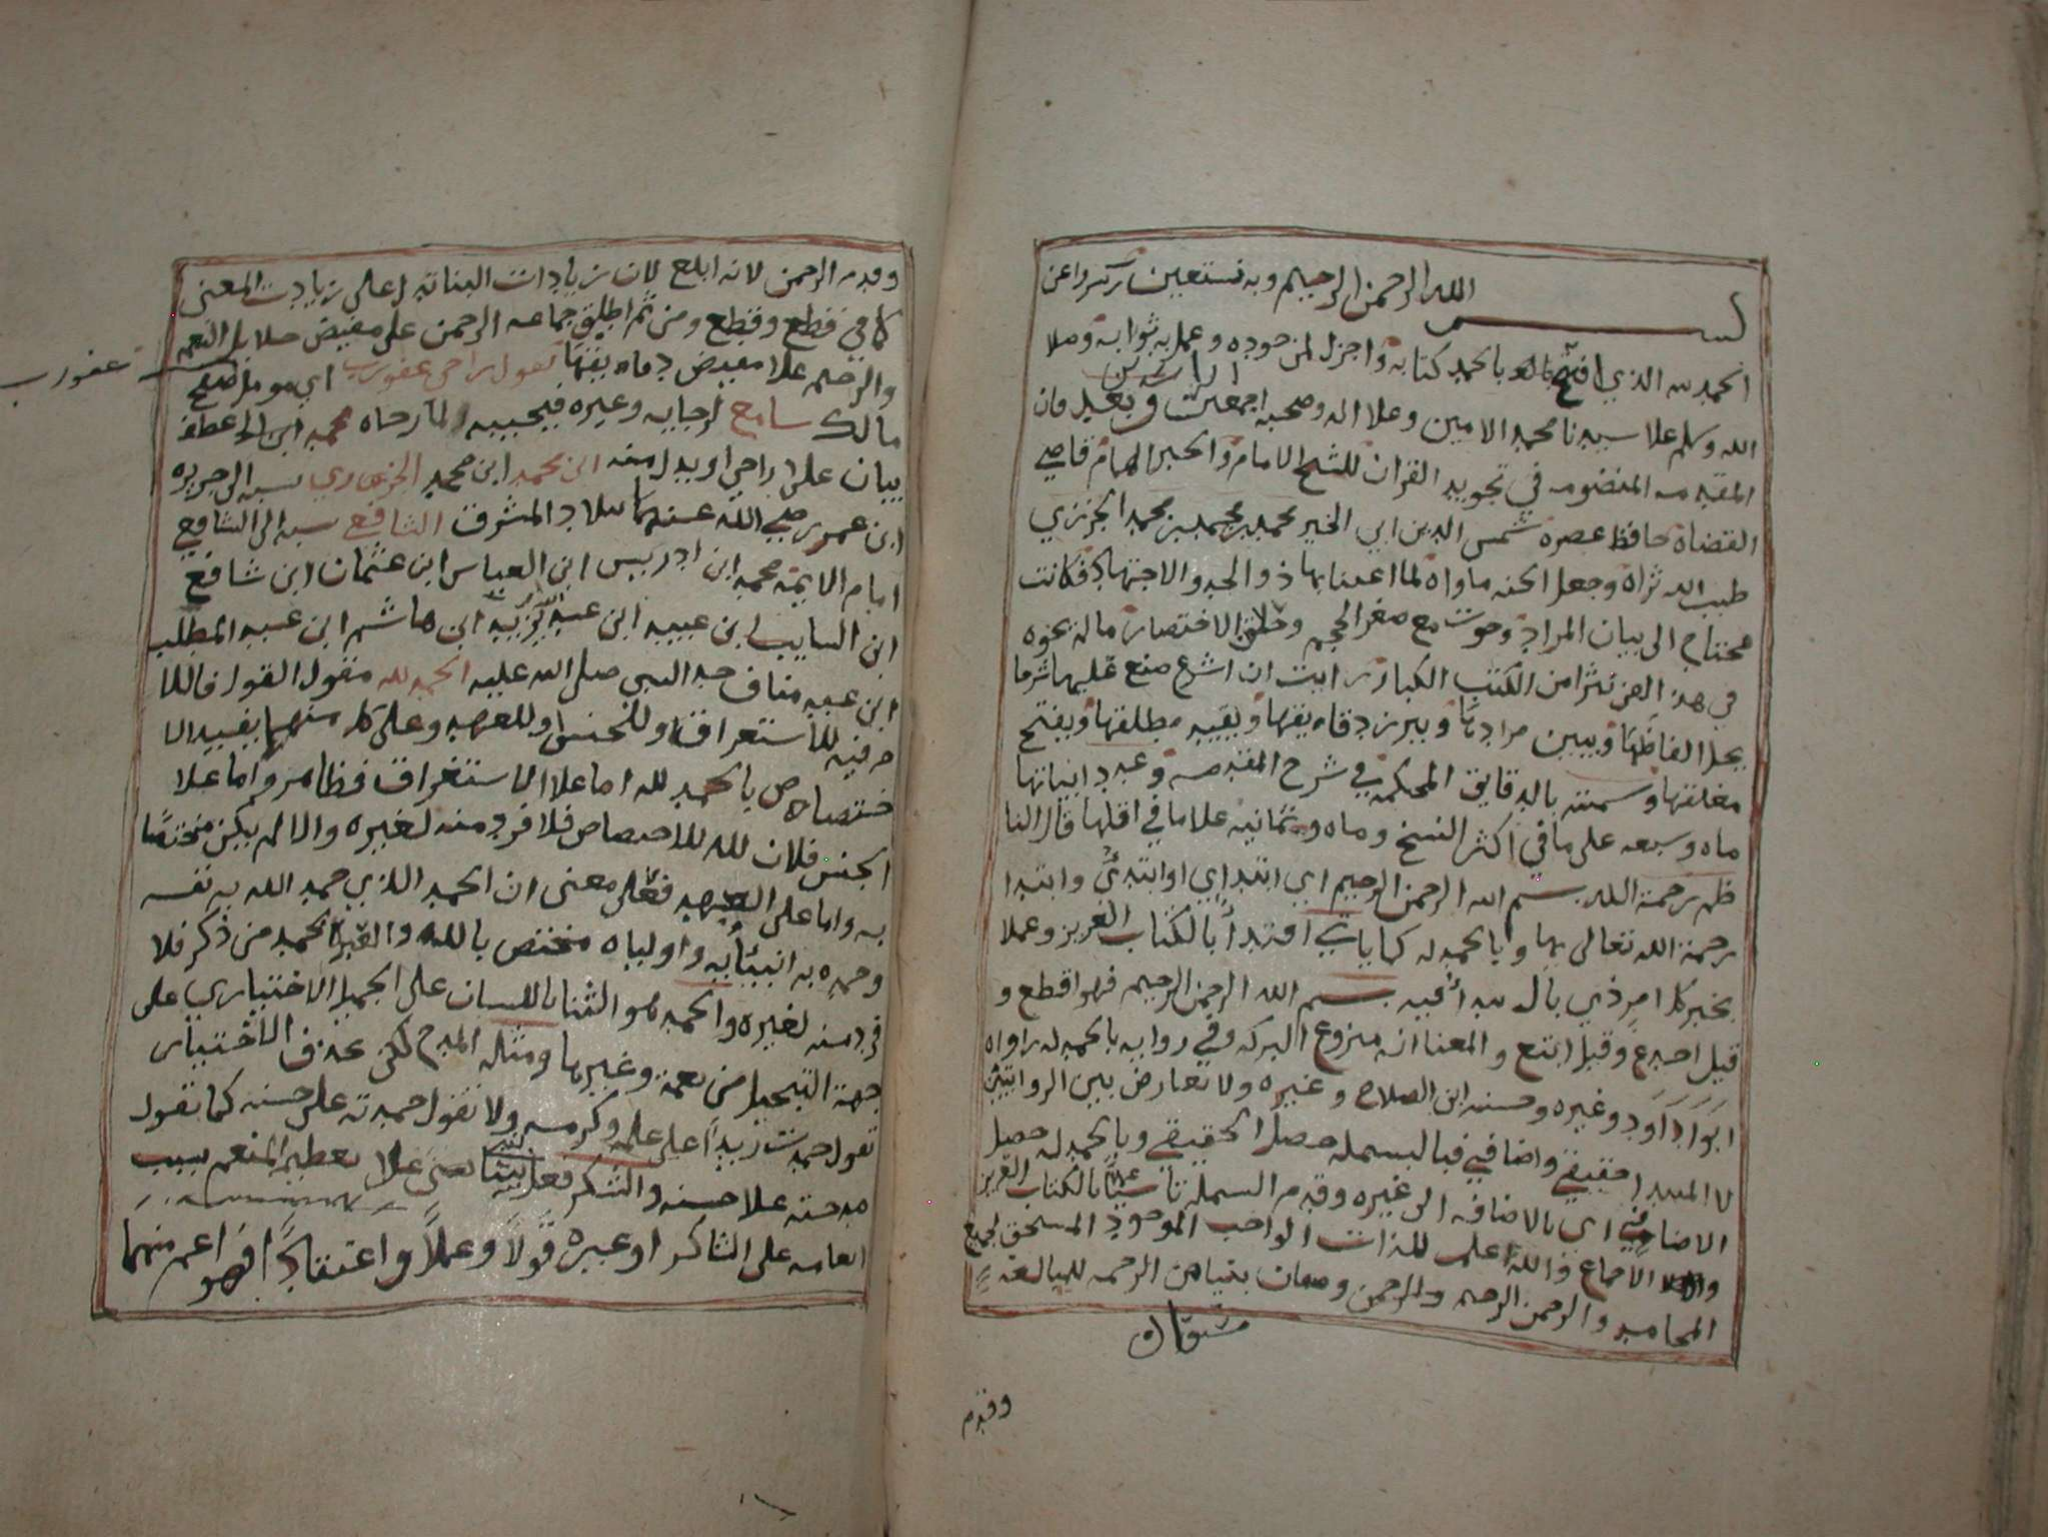 بسم الله الرحمن الرحيم وبه نستعين رب يسر واعن
الحمد لله الذي افتتح بالحمد كتابه واجزل لمن جوده وعمل به ثوابه وصلا
الله وسلم علا سيدنا محمد الامين وعلا اله وصحبه اجمعين وبعد فان
المقدمه المنضومه في تجويد القران للشيخ الامام والحبر الهمام قاضي
القضاة حافظ عصره شمس الدين ابي الخير محمد بن محمد بن محمد الجزري
طيب الله ثراه وجعل الجنه ماواه لما اعتنا بها ذو الجد والاجتهاد فكانت
محتاج الى بيان المراد وحوت مع صغر الحجم وحلاق الاختصار ما لم تحوه
في هذ الفن كثرا من الكتب الكبار رايت ان اشرع صنع عليها شرما
يحل الفاظها ويبين مرادها ويبرز دقاه يقها ويقيد مطلقها ويفتح
مغلقها وسمته بالدقايق المحكمه في شرح المقدمه وعدد ابياتها
ماه وسبعه على ما في اكثر النسخ وماه وثمانيه علا ما في اقلها قال النا
ظم رحمة الله بسم الله الرحمن الرحيم اي ابتداي او ابتدئ وابتدا
رحمة الله تعالى بها وبالحمد له كما ياتي اقتدأ بالكتاب العزيز وعملا
بخبر كل امر ذي بال لا يبدأ فيه بسم الله الرحمن الرحيم فهو اقطع و
قيل اجدع وقيل ابتع والمعنا انه منزوع البركه وفي روايه بالحمد له رواه
ابوا داود وغيره وحسنه ابن الصلاح وغيره ولا تعارض بين الروايتين
لا المبدا حقيقي واضافي فبالبسمله حصل الحقيقي وبالحمد له حصل
الاضافي اي بالاضافه الى غيره وقدم البسمله تأسيا بالكتاب العزيز
والاجماع والله اعلم للذات الواجب الموجود المستحق لجميع
المحامد والرحمن الرحيم والرحمن وصفان بنياهن الرحمه للمبالغه
مشتقان
وقدم
وقدم الرحمن لانه ابلغ لان زيادات البناتد لعلى زيادت المعنى
كما في قطع وقطع ومن ثم اطلق جماعه الرحمن على مفيض جلايل النعم
والرحيم علا مفيض دقاه يقها تقول راجي عفو رب اي مومل صفح
عفو رب
مالك سامع لرجايه وغيره فيجيبه لما رجاه محمد ابن الجـ عطف
بيان على راجي او بدل منه ابن محمد ابن محمد الجزري نسبه الى جزيره
ابن عمر رضي الله عنهما ببلاد المشرق الشافعي نسبه الى الشافعي
امام الايمه محمد ابن ادريس ابن العباس ابن عثمان ابن شافع
ابن السايب ابن عبيد ابن عبد يزيد ابن هاشم ابن عبد المطلب
ابن عبد مناف جد النبي صلى الله عليه الحمد لله مقول القول فاللا
م فيه للاستغراق او للجنس او للعهد وعلى كل منهما يفيد الا
ختصاص بالحمد لله اما علا الاستغراق فظاهر واما علا
الجنس فلان لله للاختصاص فلا فرد منه لغيره والا لم يكن مختصا
به واما على العهد فعلى معنى ان الحمد الذي حمد الله به نفسه
وحمده به انبيئايه واوليااه مختص بالله والعبرة بحمد من ذكر فلا
فرد منه لغيره والحمد هو الثنا باللسان على الجميل الاختياري على
جهة التبجيل من نعمة وغيرها ومثله المدح لكن بحذف الاختياري
تقول حمدت زيدا على علمه وكرمه ولا تقول حمدته على حسنه كما تقول
مدحته علا حسنه والشكر فعل ينبئ عن تعظيم المنعم بسبب
انعامه على الشاكر او غيره قولا وعملا واعتقادا فهو اعم منهما